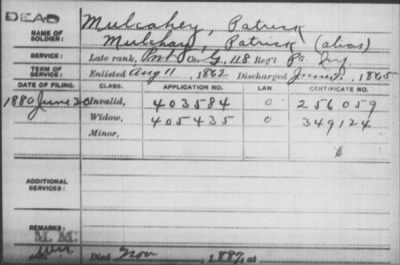 DEAD
NAME OF SOLDIER:
Mulcahey, Patrick
Mulchay, Patrick (alias)
SERVICE: Late rank, Pvt Co. G, 118 Reg't Pa Inf.
TERM OF SERVICE: Enlisted Aug 11, 1862 Discharged June 1, 1865
DATE OF FILING. CLASS. APPLICATION NO. LAW CERTIFICATE NO.
1880 June 20 Invalid, 403584 0 256059
Widow, 405435 0 349124
Minor,
ADDITIONAL SERVICES:
REMARKS:
M. M:
Died Nov , 1887, at